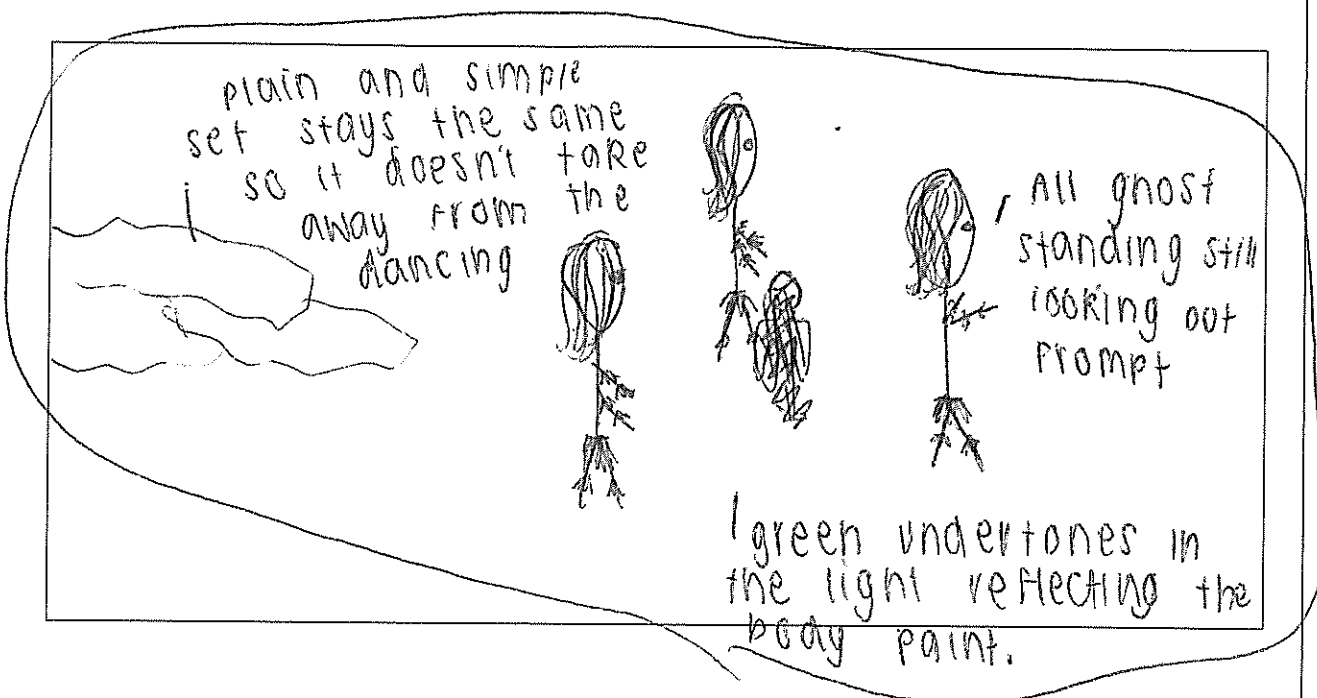 plain and simple
set stays the same
so it doesn't take
away from the
dancing
All ghost
standing still
looking out
prompt
green undertones in
the light reflecting the
body paint.